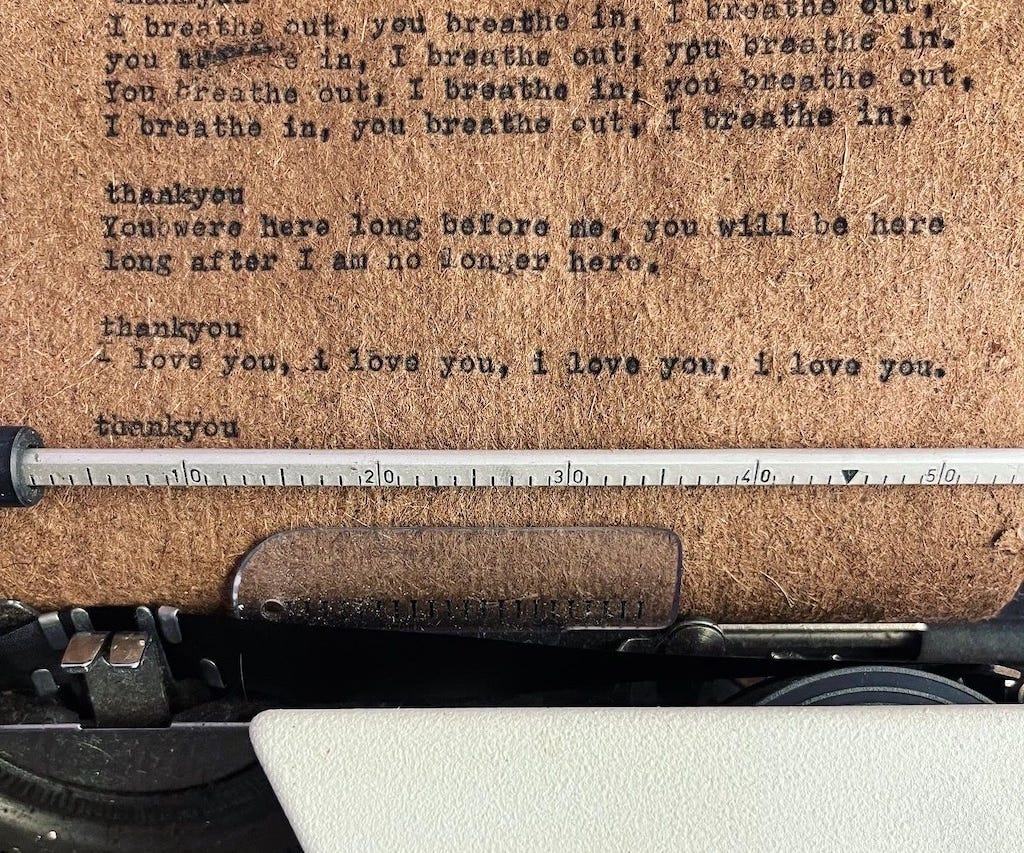 thankyou
I breathe out, you breathe in, I breathe out,
you breathe in, I breathe out, you breathe in.
You breathe out, I breathe in, you breathe out,
I breathe in, you breathe out, I breathe in.
thankyou
You were here long before me, you will be here
long after I am no longer here.
thankyou
I love you, i love you, i love you, i love you.
thankyou
10 20 30 40 50